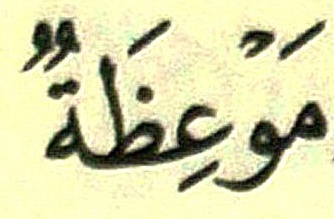 مَوْعِظَةٌ